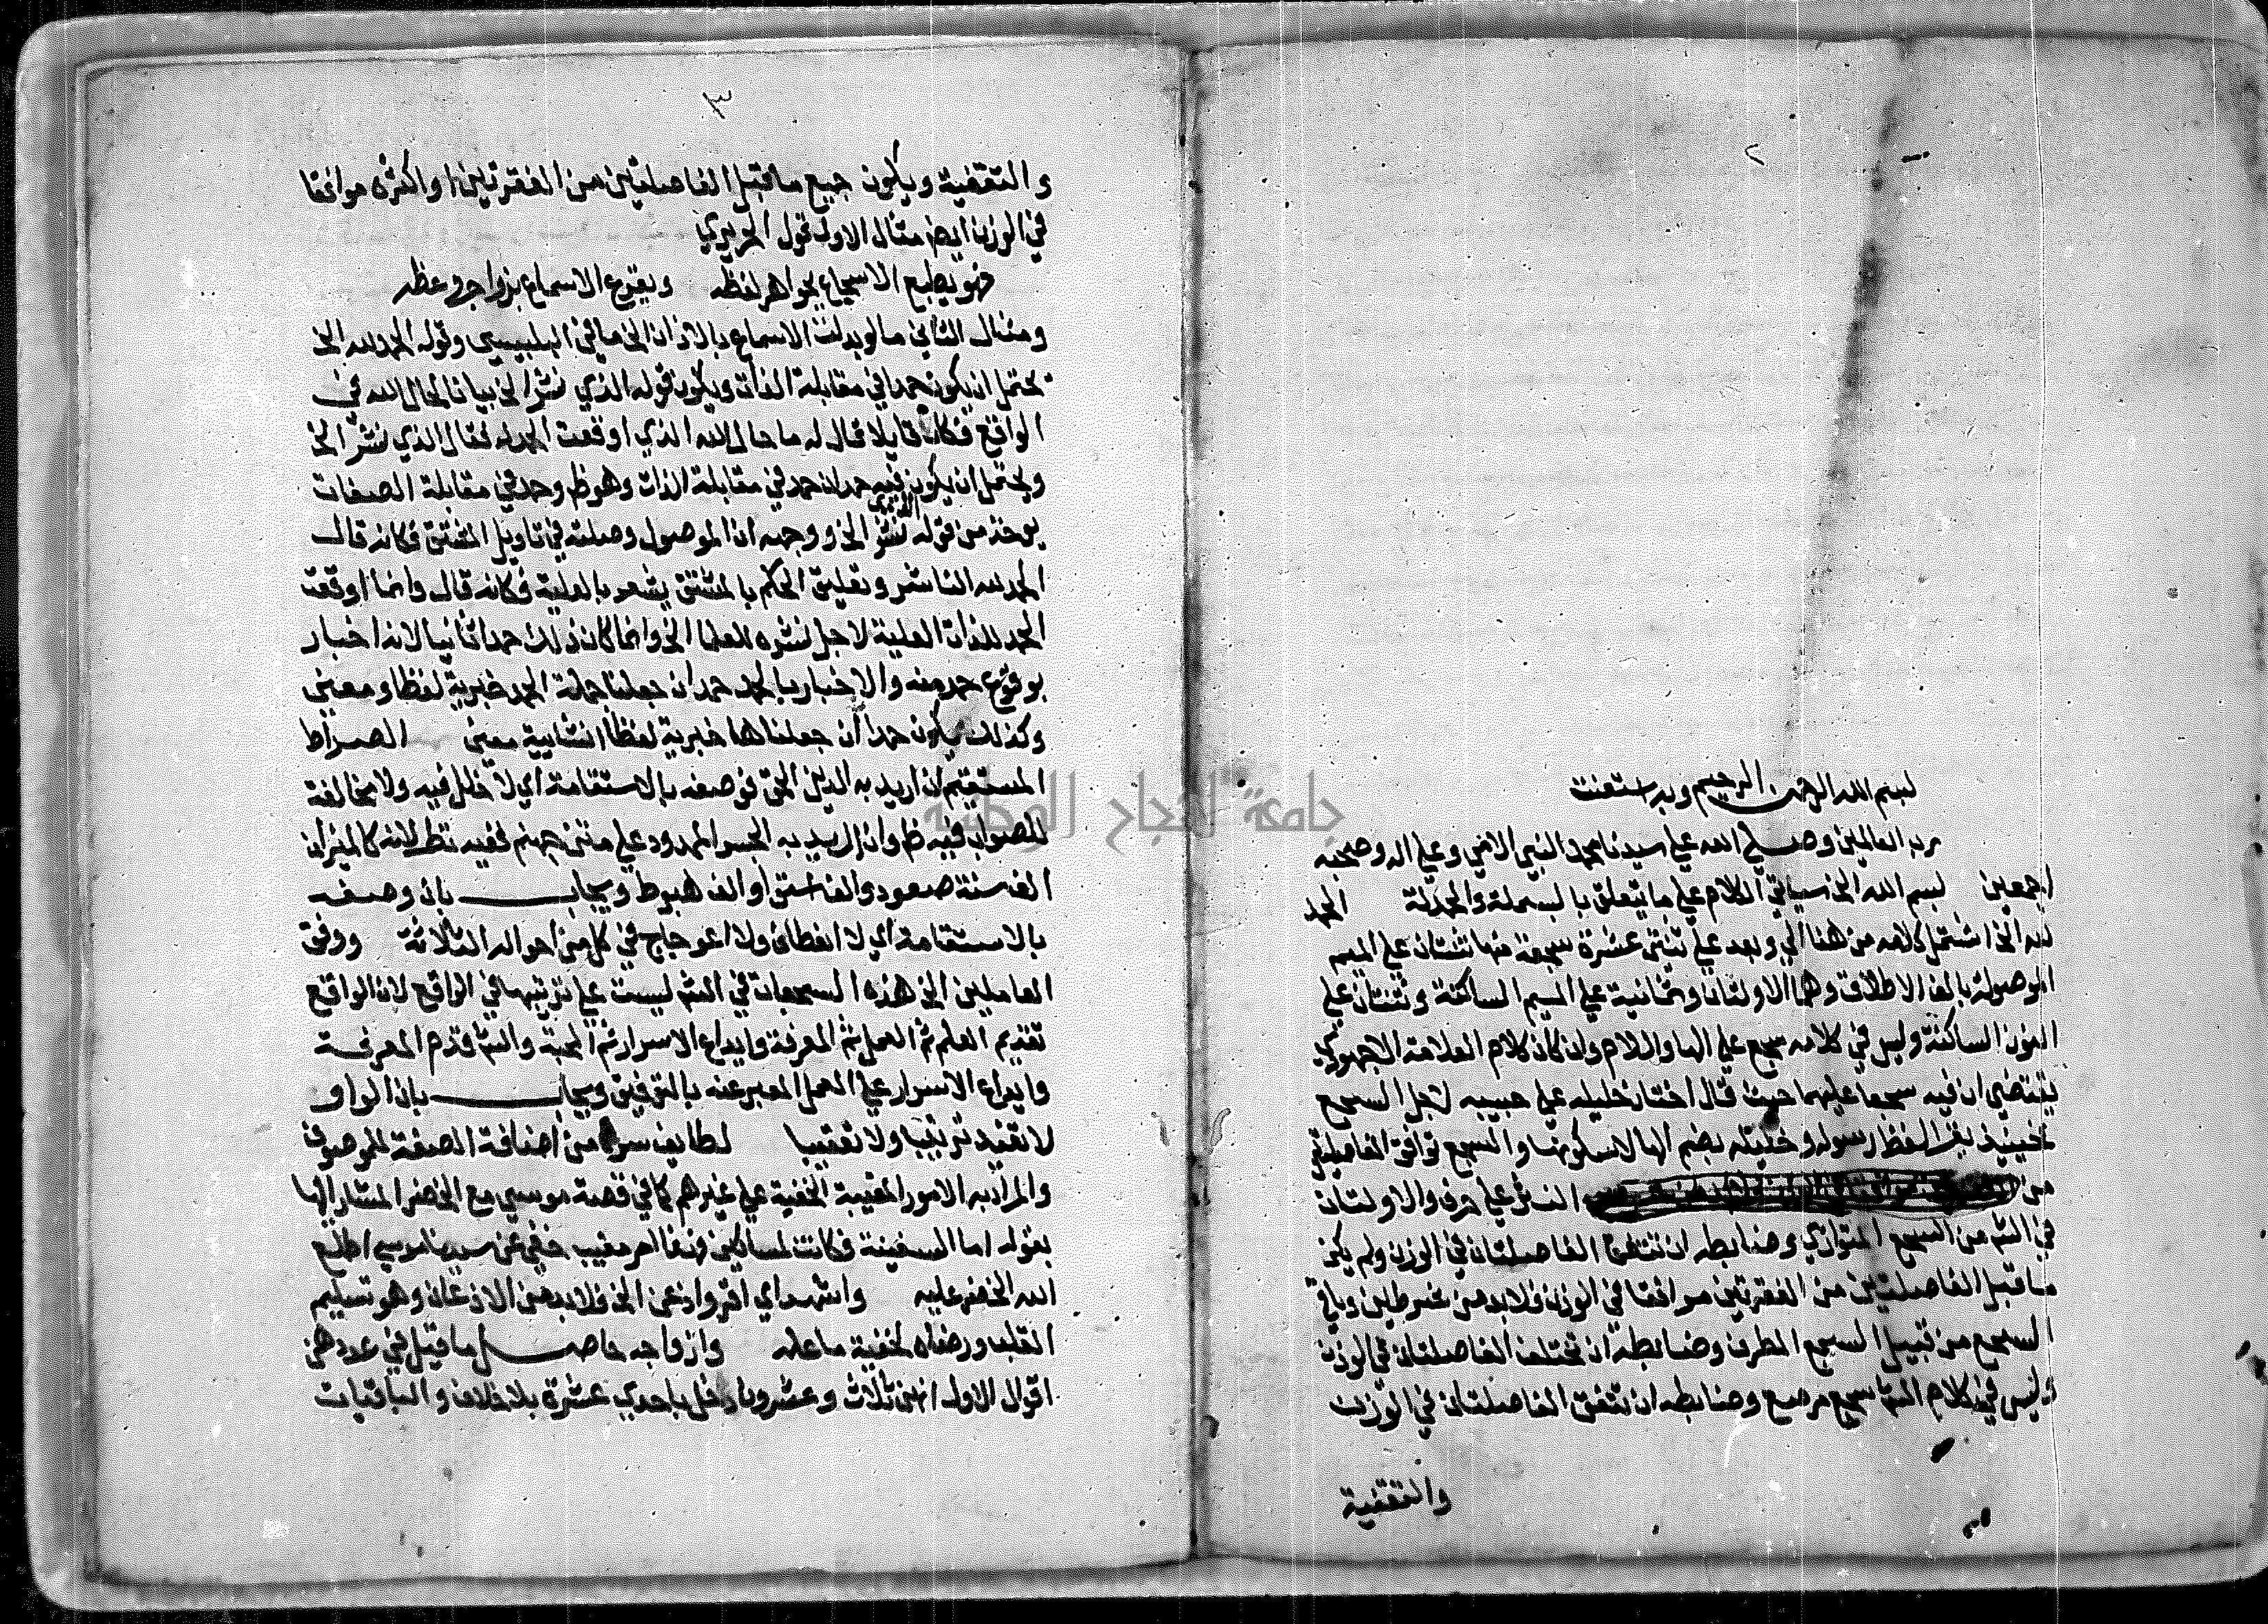 ٢
بسم الله الرحمن الرحيم وبه استعنت
رب العالمين وصلى الله على سيدنا محمد النبي الامي وعلى اله وصحبه
اجمعين بسم الله الخ سياتي الكلام على ما يتعلق بالبسملة والحمدلة الحمد
لله الخ اشتمل كلامه من هنا الى وبعد على ثنتى عشرة سجعة منها ثنتان على الميم
الموصولة بالف الاطلاق وهما الاولتان وثمانية على الميم الساكنة وثنتان على
النون الساكنة وليس في كلامه سجع على الها واللام وان كان كلام العلامة الاجهوري
يقتضي ان فيه سجعا عليهما حيث قال اختار خليله على حبيبه لاجل السجع
فحينيذ يقرا لفظ رسوله وخليله بضم الها لا بسكونها والسجع توافق الفاصلتين
من النثر على حرف والاولتان
في الشم من السجع المتوازي وضابطه ان تتفق الفاصلتان في الوزن ولم يكن
ما قبل الفاصلتين من الفقرتين موافقا في الوزن فلابد من شرطين وباقي
السجع من قبيل السجع المطرف وضابطه ان تختلف الفاصلتان في الوزن
وليس في كلام الشم سجع مرصع وضابطه ان تتفق الفاصلتان في الوزن
والتقفية
٣
والتقفية ويكون جميع ما قبل الفاصلتين من الفقرتين او اكثره موافقا
في الوزن ايضا مثال الاول قول الحريري
فهو يطبع الاسجاع بجواهر لفظه ويقرع الاسماع بزواجر وعظه
ومثال الثاني ما لو بدلت الاسماع بالاذان الخ ما في البلبيسي وقوله الحمد لله الخ
يحتمل ان يكون حمدا في مقابلة الذات ويكون قوله الذي نشر الخ بيانا لحال الله في
الواقع فكان قايلا قال له ما حال الله الذي اوقعت الحمد له فقال الذي نشر الخ
ويحتمل ان يكون فيه حمدان حمد في مقابلة الذات وهو ظ وحمد في مقابلة الصفات
يوخذ من قوله الذي نشر الخ ووجهه ان الموصول وصلته في تاويل المشتق فكانه قال
الحمد لله الناشر وتعليق الحكم بالمشتق يشعر بالعلية فكانه قال وانما اوقعت
الحمد للذات العلية لاجل نشره للعلما الخ وانما كان ذلك حمدا ثانيا لانه اخبار
بوقوع حمد منه والاخبار بالحمد حمد ان جعلنا جملة الحمد خبرية لفظا ومعنى
وكذلك يكون حمدا ان جعلناها خبرية لفظا انشايية معنى الصراط
المستقيم ان اريد به الدين الحق فوصفه بالاستقامة اي لا خلل فيه ولا مخالفة
للصواب فيه ظ وان اريد به الجسر الممدود على متن جهنم ففيه نظر لانه كالميزان
الف سنة صعود والف استوا والف هبوط ويجاب بان وصفه
بالاستقامة اي لا انعطاف ولا اعوجاج في كل من احواله الثلاثة ووفق
العاملين الخ هذه السجعات في الشم ليست على ترتيبها في الواقع لان الواقع
تقديم العلم ثم العمل ثم المعرفة وايداع الاسرار ثم المحبة والشم قدم المعرفة
وايداع الاسرار على العمل المعبر عنه بالتوفيق ويجاب بان الواو
لا تقتضي ترتيبا ولا تعقيبا لطايف سره من اضافة الصفة للموصوف
والمراد به الامور المغيبة الخفية على غيرهم كما في قصة موسى مع الخضر المشار اليها
بقوله اما السفينة فكانت لمساكين فهذا امر مغيب خفي عن سيدنا موسى اطلع
الله الخضر عليه واشهد اي اقر واذعن الخ فلابد من الاذعان وهو تسليم
القلب ورضاه لحقيقة ما علمه وازواجه حاصل ما قيل في عددهن
اقوال الاول انهن ثلاث وعشرون دخل باحدى عشرة بلا خلاف والباقيات
جامعة النجاح الوطنية